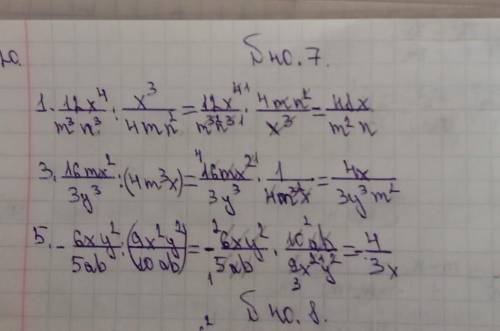 20.
Б но. 7.
1. 12x⁴/m³n³ : x³/4mn² = 12x⁴/m³n³ · 4mn²/x³ = 48x/m²n
3. 16mx²/3y³ : (4m³x) = 16mx²/3y³ · 1/4m³x = 4x/3y³m²
5. -6xy²/5ab : (9x²y²/10ab) = -6xy²/5ab · 10ab/9x²y² = -4/3x
Б но. 8.